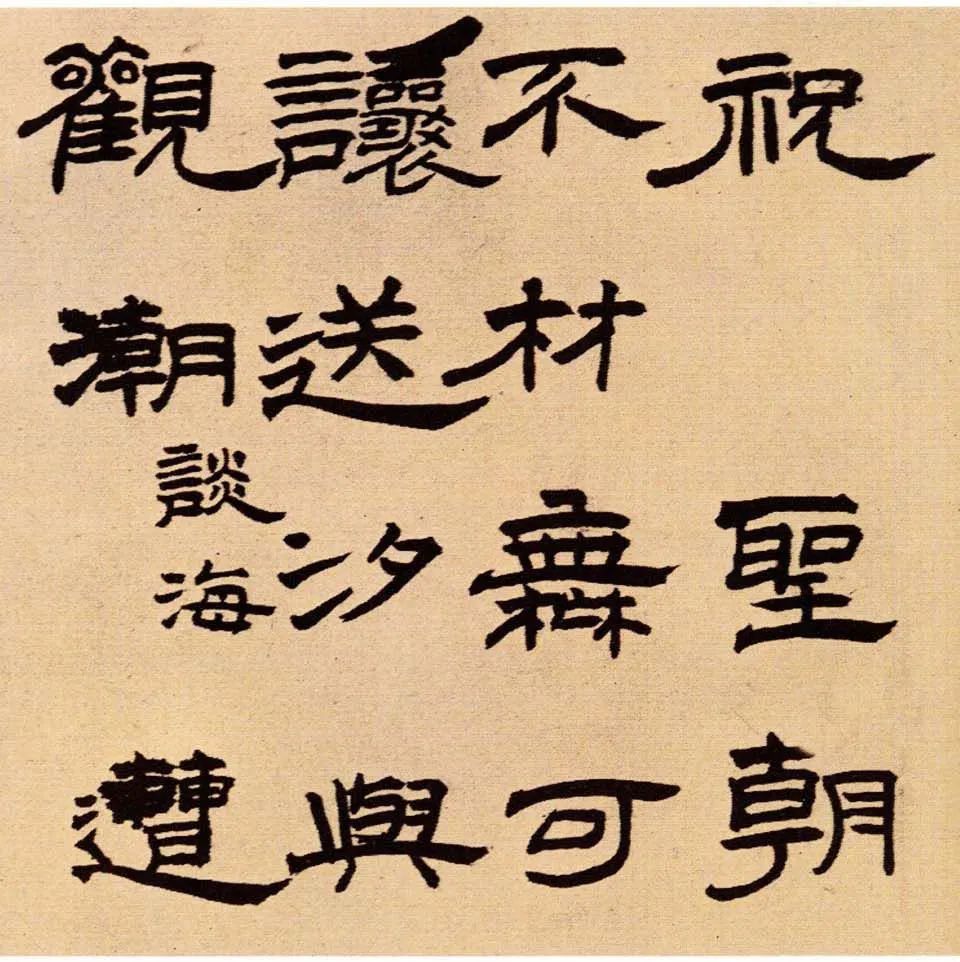 祝聖朝
不材無可
讓送汐與
觀潮談海遭